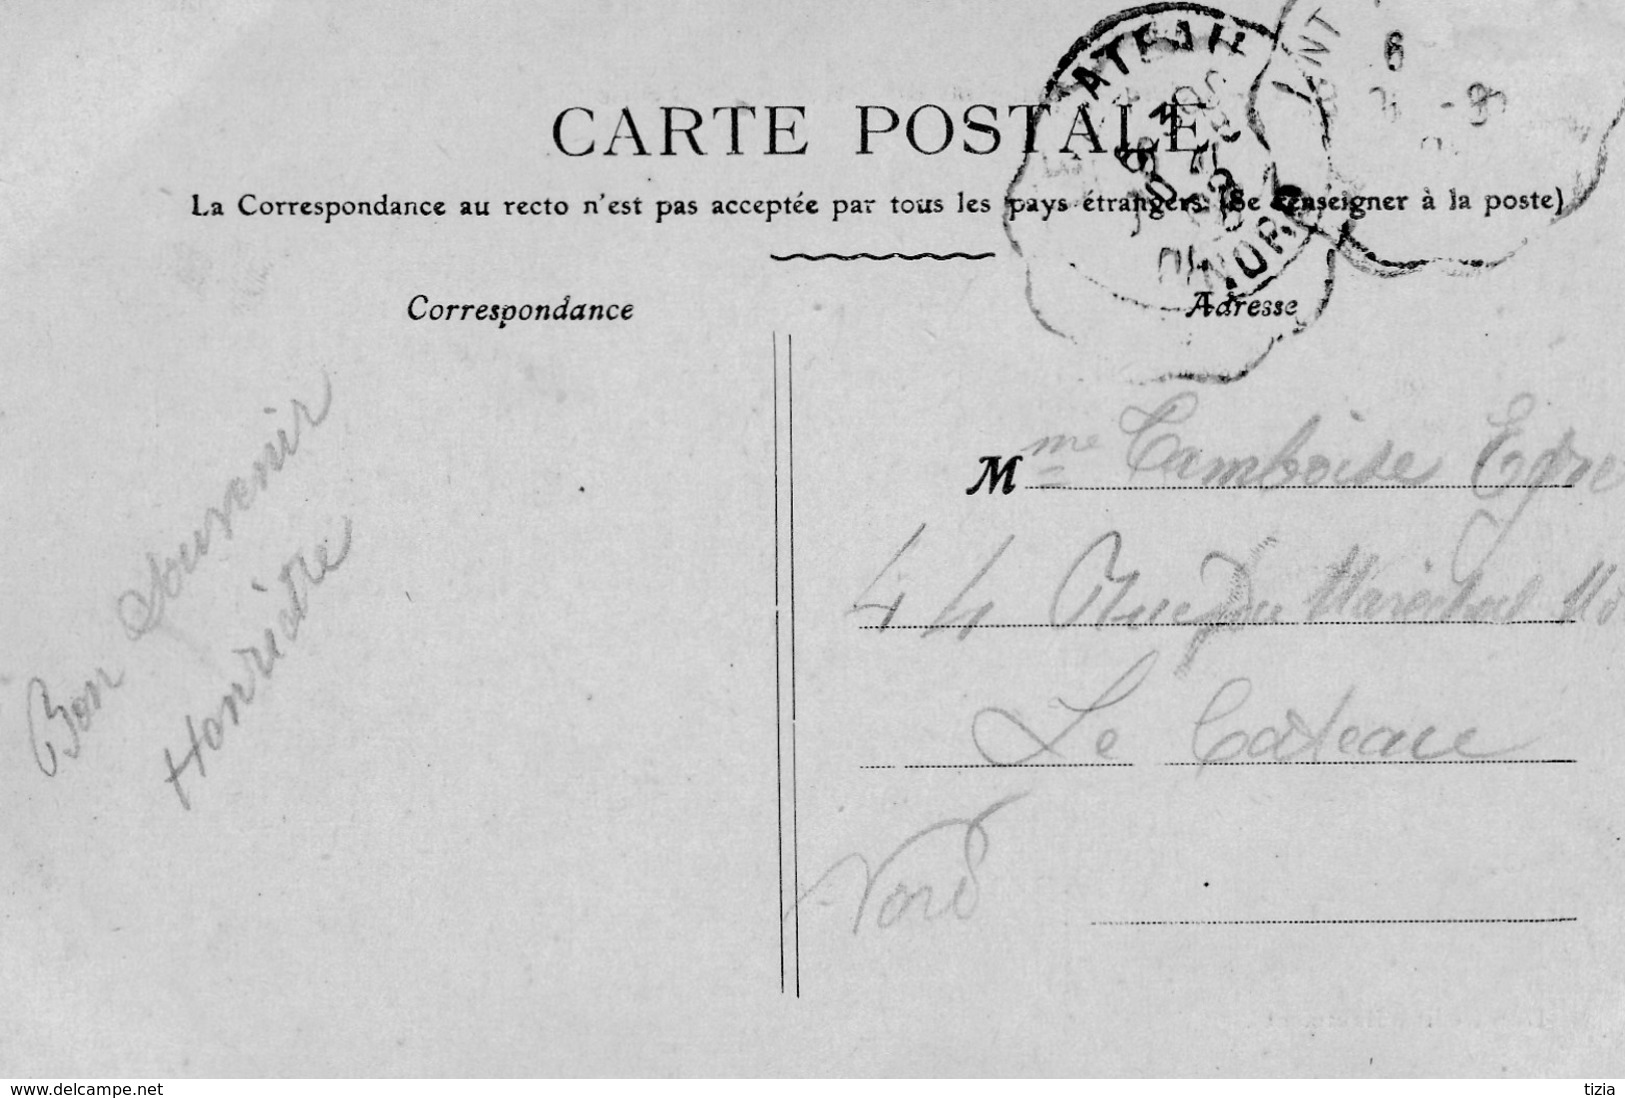 CARTE POSTALE
La Correspondance au recto n'est pas acceptée par tous les pays étrangers. (Se renseigner à la poste)
Correspondance
Adresse
Bon Souvenir
Henriètte
Mme Camboise
44 Rue Du Maréchal
Le Cateau
Nord
NORD
www.delcampe.net
tizia